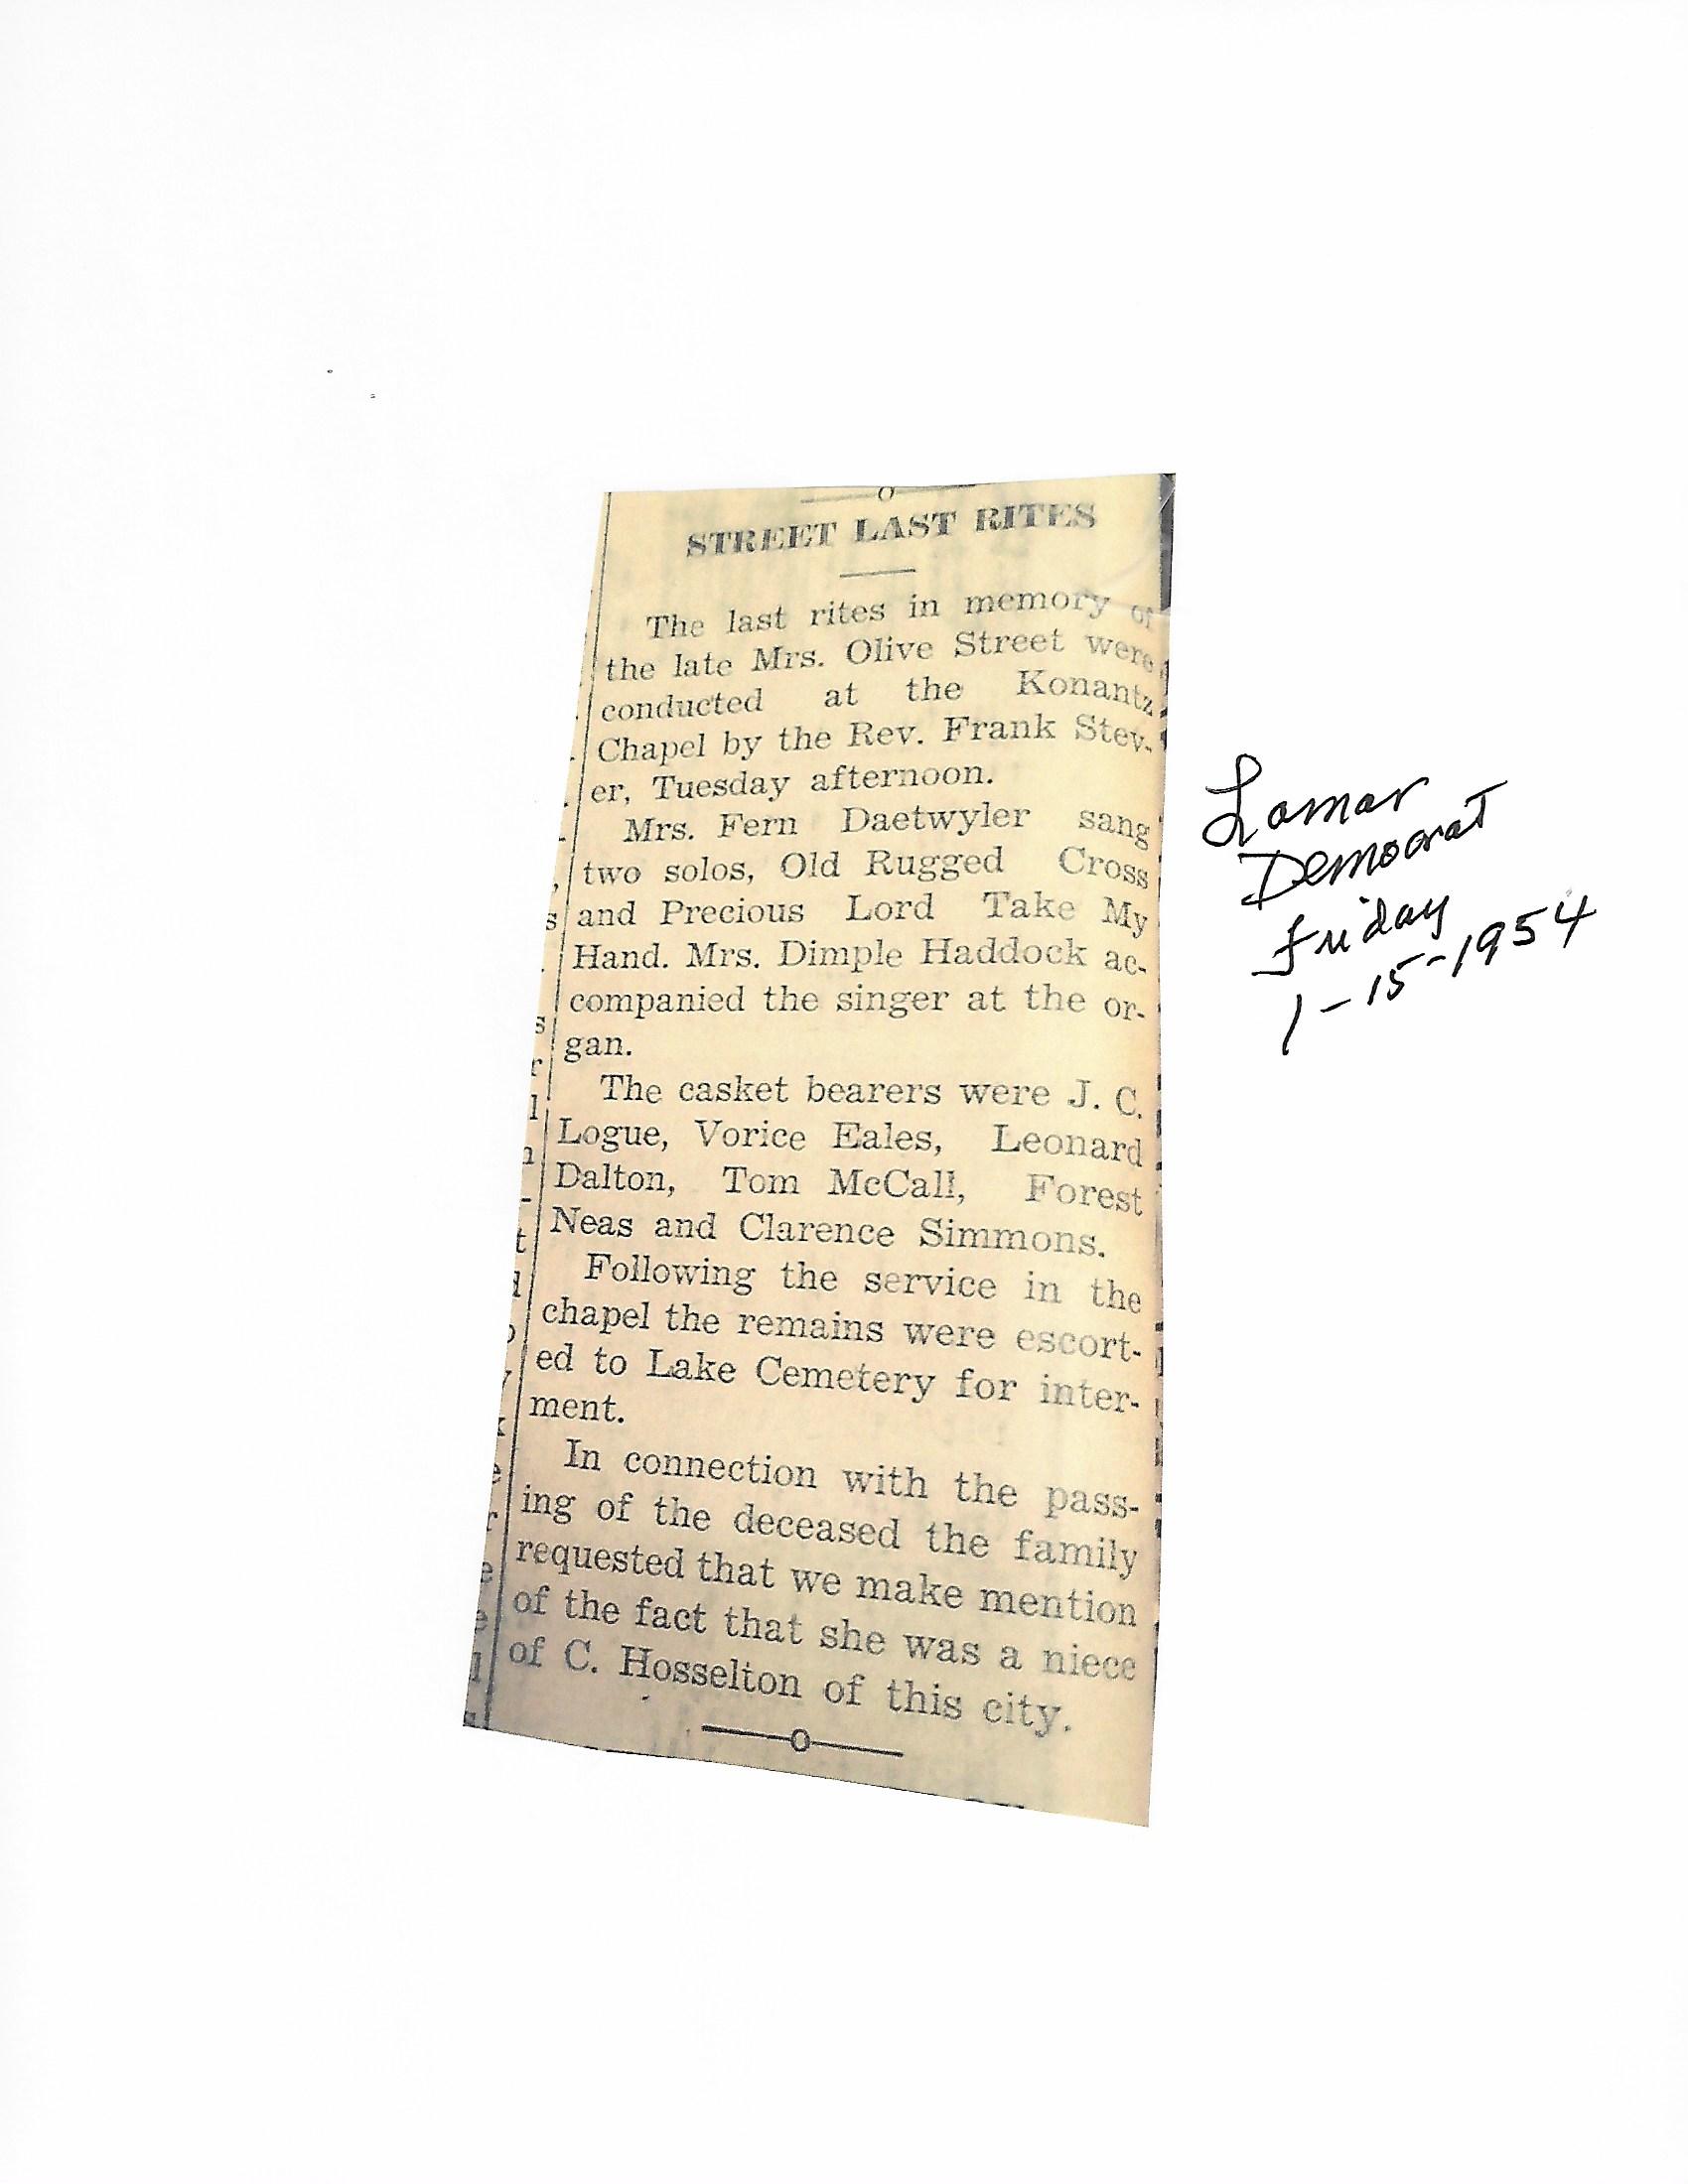 STREET LAST RITES
The last rites in memory of
the late Mrs. Olive Street were
conducted at the Konantz
Chapel by the Rev. Frank Stev-
er, Tuesday afternoon.
Mrs. Fern Daetwyler sang
two solos, Old Rugged Cross
and Precious Lord Take My
Hand. Mrs. Dimple Haddock ac-
companied the singer at the or-
gan.
The casket bearers were J. C.
Logue, Vorice Eales, Leonard
Dalton, Tom McCall, Forest
Neas and Clarence Simmons.
Following the service in the
chapel the remains were escort-
ed to Lake Cemetery for inter-
ment.
In connection with the pass-
ing of the deceased the family
requested that we make mention
of the fact that she was a niece
of C. Hosselton of this city.
Lamar
Democrat
Friday
1-15-1954